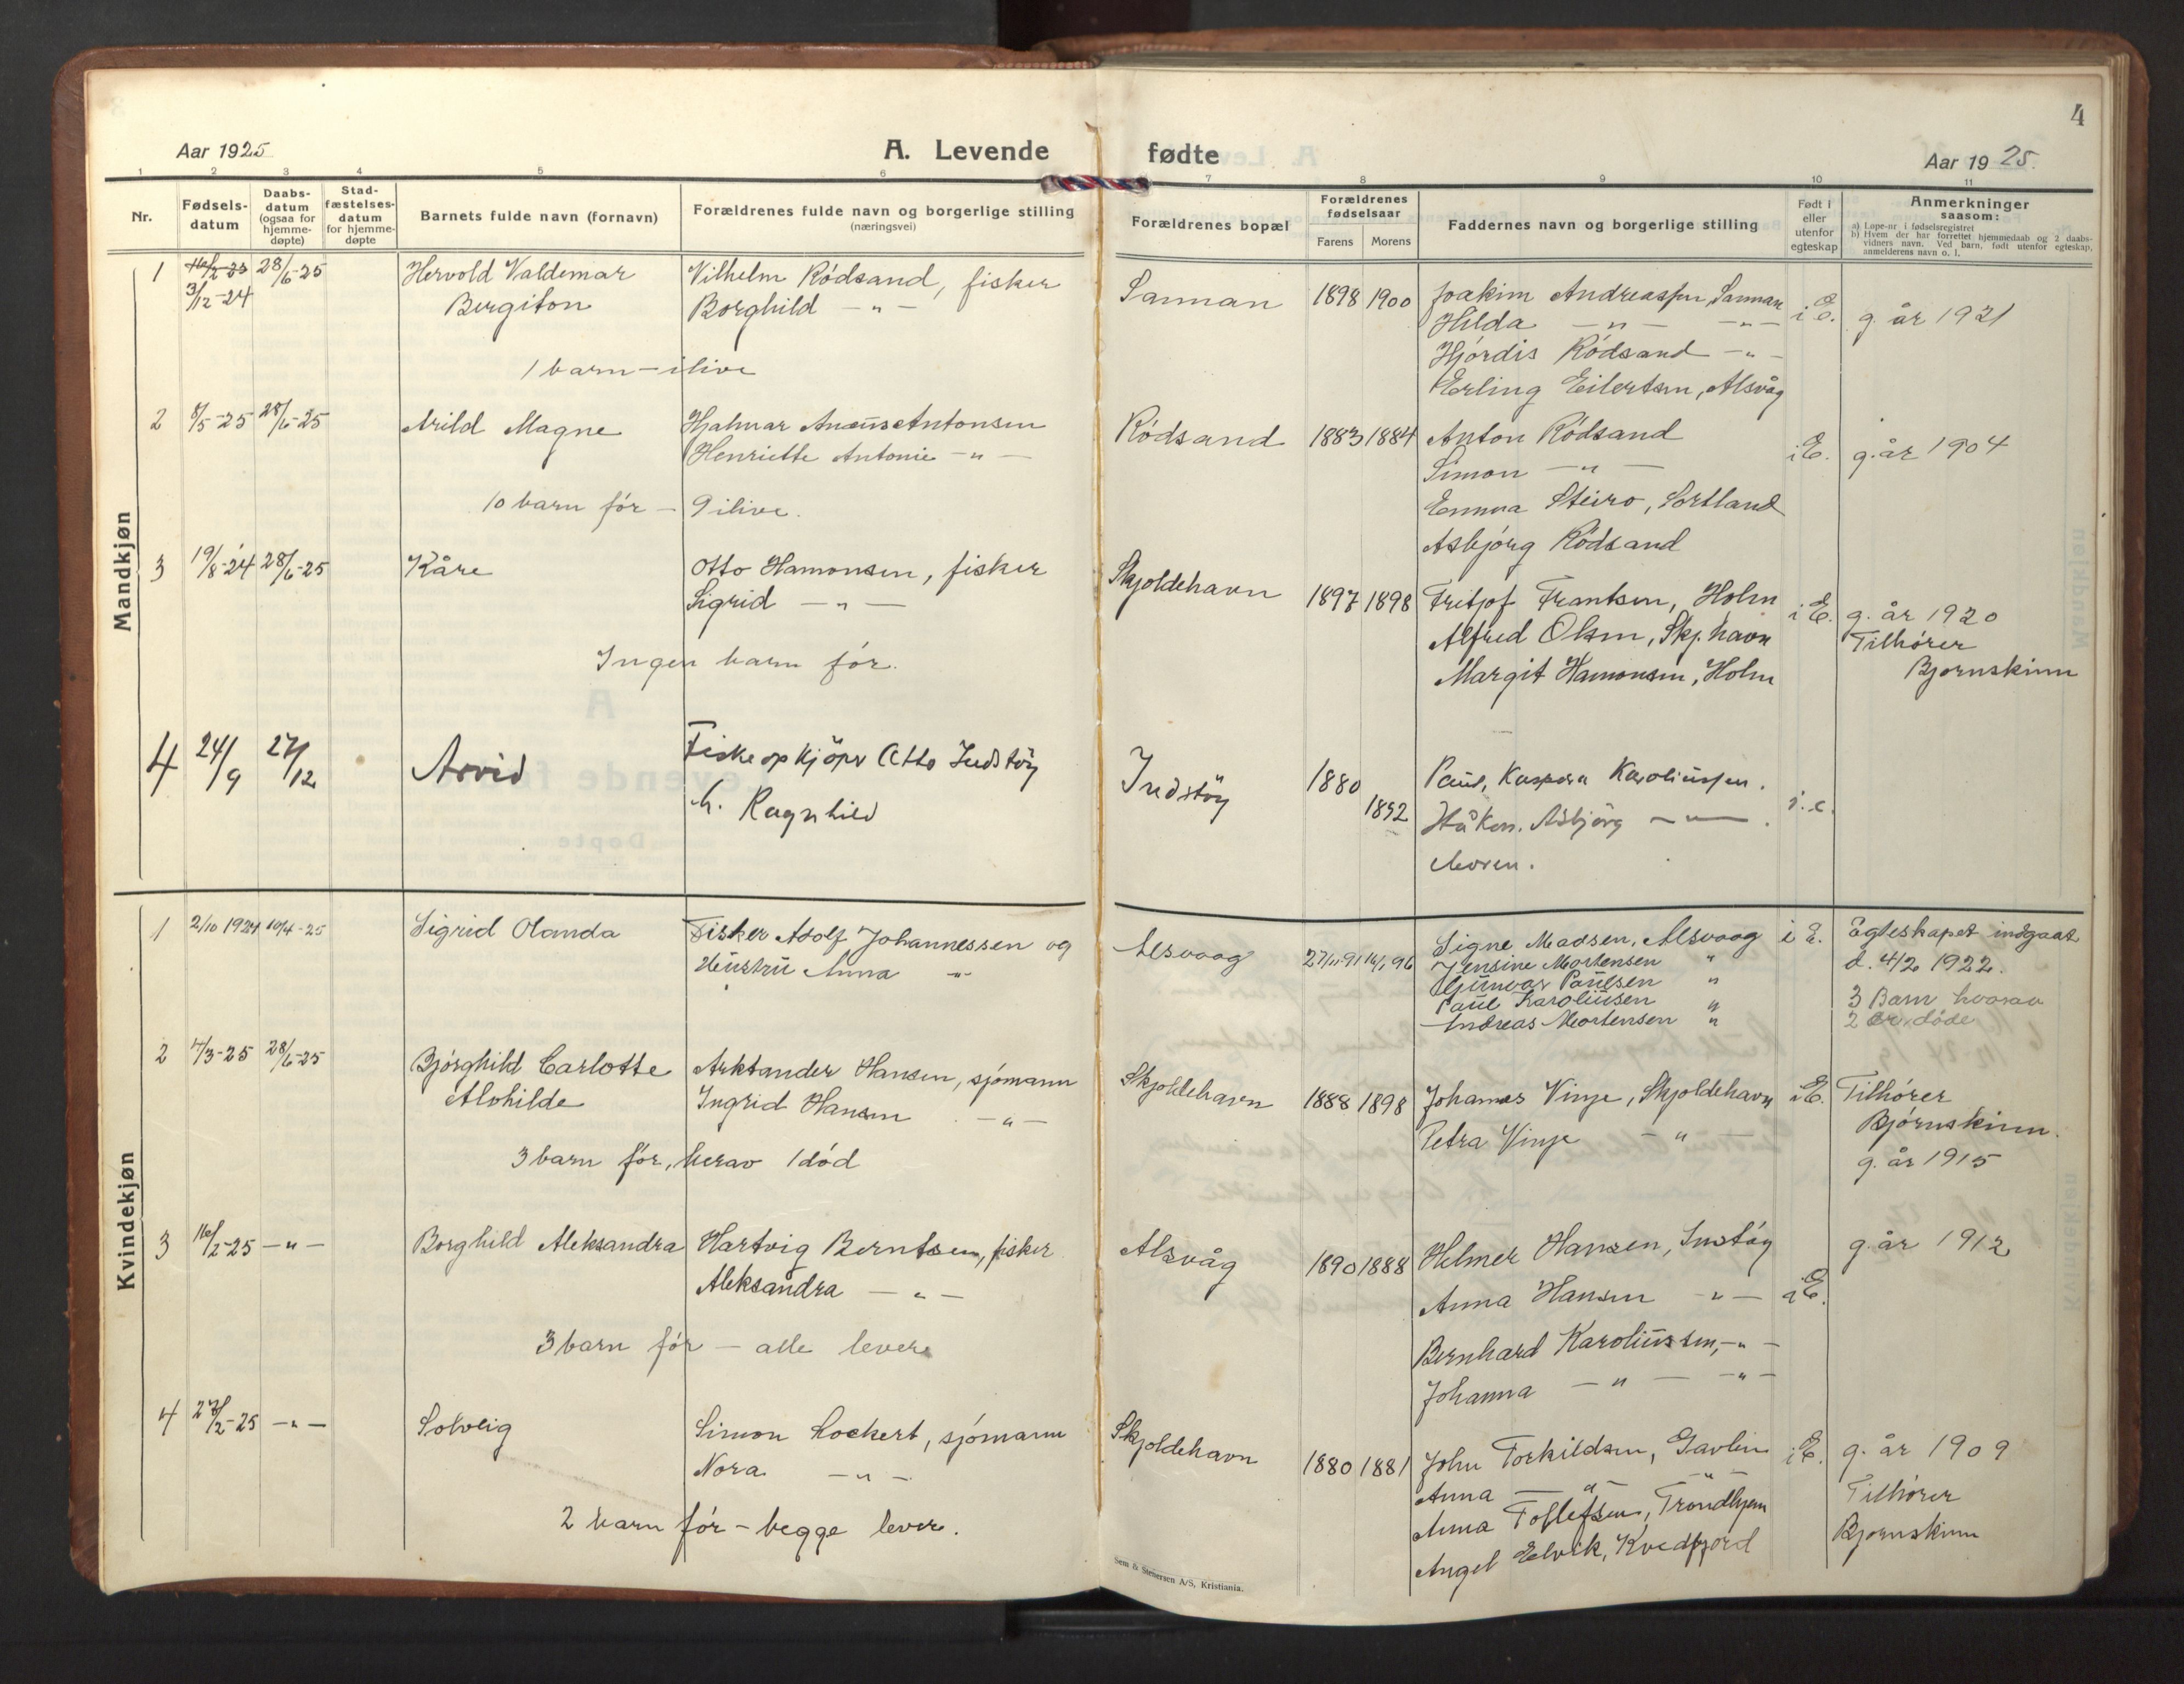 4
Aar 1925
A. Levende fødte
Aar 1925.
1 2 3 4 5 6 7 8 9 10 11
Nr.
Fødselsdatum
Daabsdatum (ogsaa for hjemmedøpte)
Stadfæstelsesdatum for hjemmedøpte
Barnets fulde navn (fornavn)
Forældrenes fulde navn og borgerlige stilling
(næringsvei)
Forældrenes bopæl
Forældrenes fødselsaar
Farens Morens
Faddernes navn og borgerlige stilling
Født i eller utenfor egteskap
Anmerkninger
saasom:
a) Løpe-nr i fødselsregistret
b) Hvem der har forrettet hjemmedaab og 2 daabsvidners navn. Ved barn, født utenfor egteskap, anmelderens navn o. l.
Mandkjøn
1 3/12-24 28/6-25 Hervold Valdemar Vilhelm Ródsand, fisker Sannan 1898 1900 Joakim Andreassen, Sannan i E. g. år 1921
Bergiton Borghild -"- Hilda -"- -"-
Hjórdis Ródsand -"-
1 barn - ilive
Erling Eilertsen, Alsvåg
2 8/5-25 28/6-25 Arild Magne Hjalmar Antonsen Ródsand 1883 1884 Anton Ródsand i E. g. år 1904
Henriette Antonie -"- Simon -"-
10 barn fór - 9 ilive. Emma Steiro, Sortland
Asbjórg Ródsand
3 19/8-24 28/6-25 Kåre Otto Hamonsen, fisker Skjoldehavn 1897 1898 Fritjof Frantsen, Holm i E. g. år 1920
Sigrid -"- Alfred Olsen, Skj.havn Tilhórer
Ingen barn fór. Margit Hamonsen, Holm Bjornskinn
4 24/9 27/12 Arvid Fiskeopkjöper Otto Indstöy Indstöy 1880 1892 Paul, Kaspara Karoliussen. i. e.
h. Ragnhild Håkon, Asbjörg -"-.
Moren.
Kvindekjøn
1 2/10 1924 10/4-25 Sigrid Olanda Fisker Adolf Johannessen og Alsvaag 27/11 91 14/1 96 Signe Madsen, Alsvaag i E. Egteskapet indgaat
Hustru Anna " Jensine Mortensen " d. 4/2 1922.
Gunvor Paulsen "
Paul Karoliusen " 3 Barn hvorav
Andreas Mortensen " 2 er døde
2 4/3-25 28/6-25 Bjórghild Carlotte Arktander Hansen, sjómann Skjoldehavn 1888 1898 Johannes Vinje, Skjoldehavn i E. Tilhórer
Alvhilde Ingrid Hansen -"- Petra Vinje -"- Bjórnskinn.
3 barn fór, herav 1 dód g. år 1915
3 16/2-25 -"- Borghild Aleksandra Hartvig Berntsen, fisker Alsvåg 1890 1888 Helmer Hansen, Instóy i E. g. år 1912
Aleksandra -"- Anna Hansen -"-
3 barn fór - alle levere Bernhard Karoliussen, -"-
Johanna -"- -"-
4 27/2-25 -"- Solveig Simon Lockert, sjómann Skjoldehavn 1880 1881 John Torkildsen, Gavlen i E. g. år 1909
Nora -"- Anna -"- -"- Tilhórer
2 barn fór - begge levere. Anna Tollefsen, Trondhjem Bjornskinn
Angel Elvik, Kvedfjord
Sem & Stenersen A/S, Kristiania.